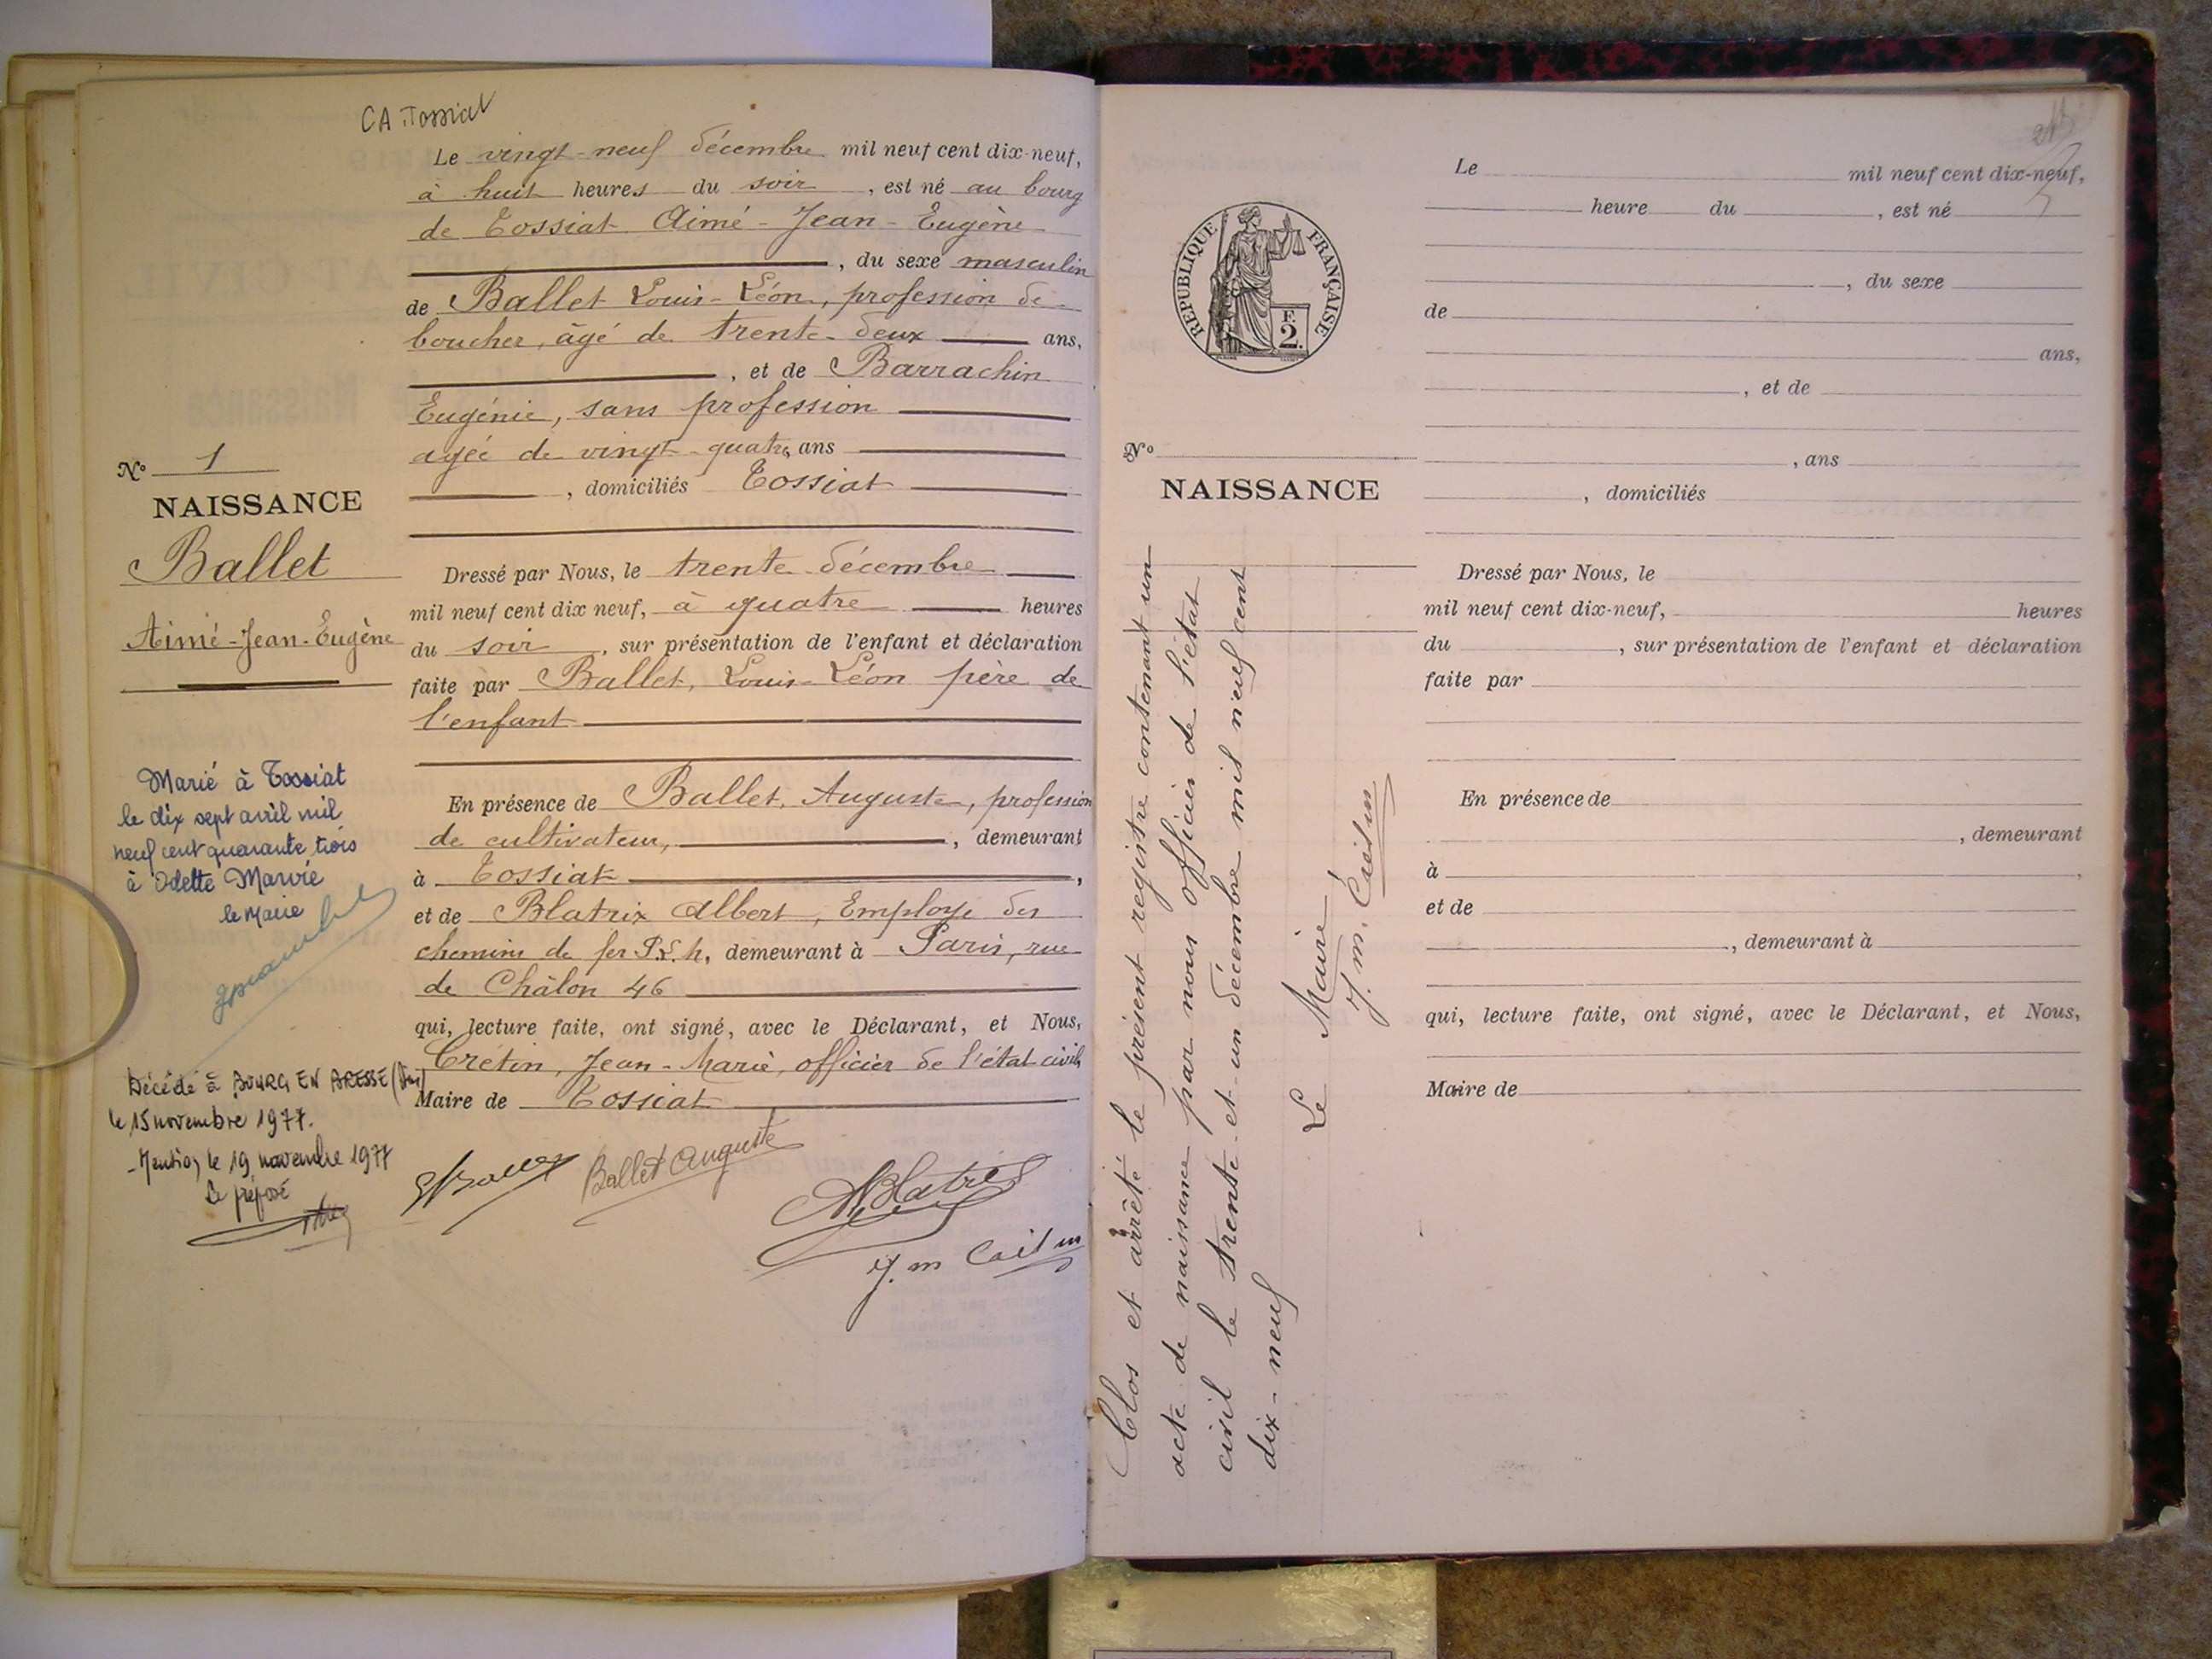 CA Tossiat
Le vingt-neuf décembre mil neuf cent dix-neuf,
à huit heures du soir, est né au bourg
de Tossiat Aimé-Jean-Eugène
, du sexe masculin
de Ballet Louis-Léon, profession de
boucher, âgé de trente-deux ans,
, et de Barrachin
Eugénie, sans profession
agée de vingt-quatre ans
, domiciliés Tossiat
Nº 1
NAISSANCE
Ballet
Aimé-Jean-Eugène
Dressé par Nous, le trente décembre
mil neuf cent dix neuf, à quatre heures
du soir, sur présentation de l'enfant et déclaration
faite par Ballet, Louis-Léon père de
l'enfant
En présence de Ballet, Auguste, profession
de cultivateur, , demeurant
à Tossiat,
et de Blatrix Albert, Employé des
chemins de fer P.L.M, demeurant à Paris, rue
de Châlon 46
qui, lecture faite, ont signé, avec le Déclarant, et Nous,
Crétin, Jean-Marie, officier de l'état civil
Maire de Tossiat
Marié à Tossiat
le dix sept avril mil
neuf cent quarante trois
à Odette Marvié
le Maire
Décédé à BOURG EN BRESSE (Ain)
le 15 novembre 1977.
- Mention le 19 novembre 1977
Le préposé
Ballet Auguste
ABlatrix
J. m Crétin
Clos et arrêté le présent registre contenant un
acte de naissance par nous officier de l'état
civil le trente-et-un décembre mil neuf cent
dix-neuf
Le Maire
J. m. Crétin
RÉPUBLIQUE FRANÇAISE
F.
2.
Nº
NAISSANCE
Le mil neuf cent dix-neuf,
heure du , est né
, du sexe
de
ans,
, et de
, ans
, domiciliés
Dressé par Nous, le
mil neuf cent dix-neuf, heures
du , sur présentation de l'enfant et déclaration
faite par
En présence de
, demeurant
à ,
et de
, demeurant à
qui, lecture faite, ont signé, avec le Déclarant, et Nous,
Maire de